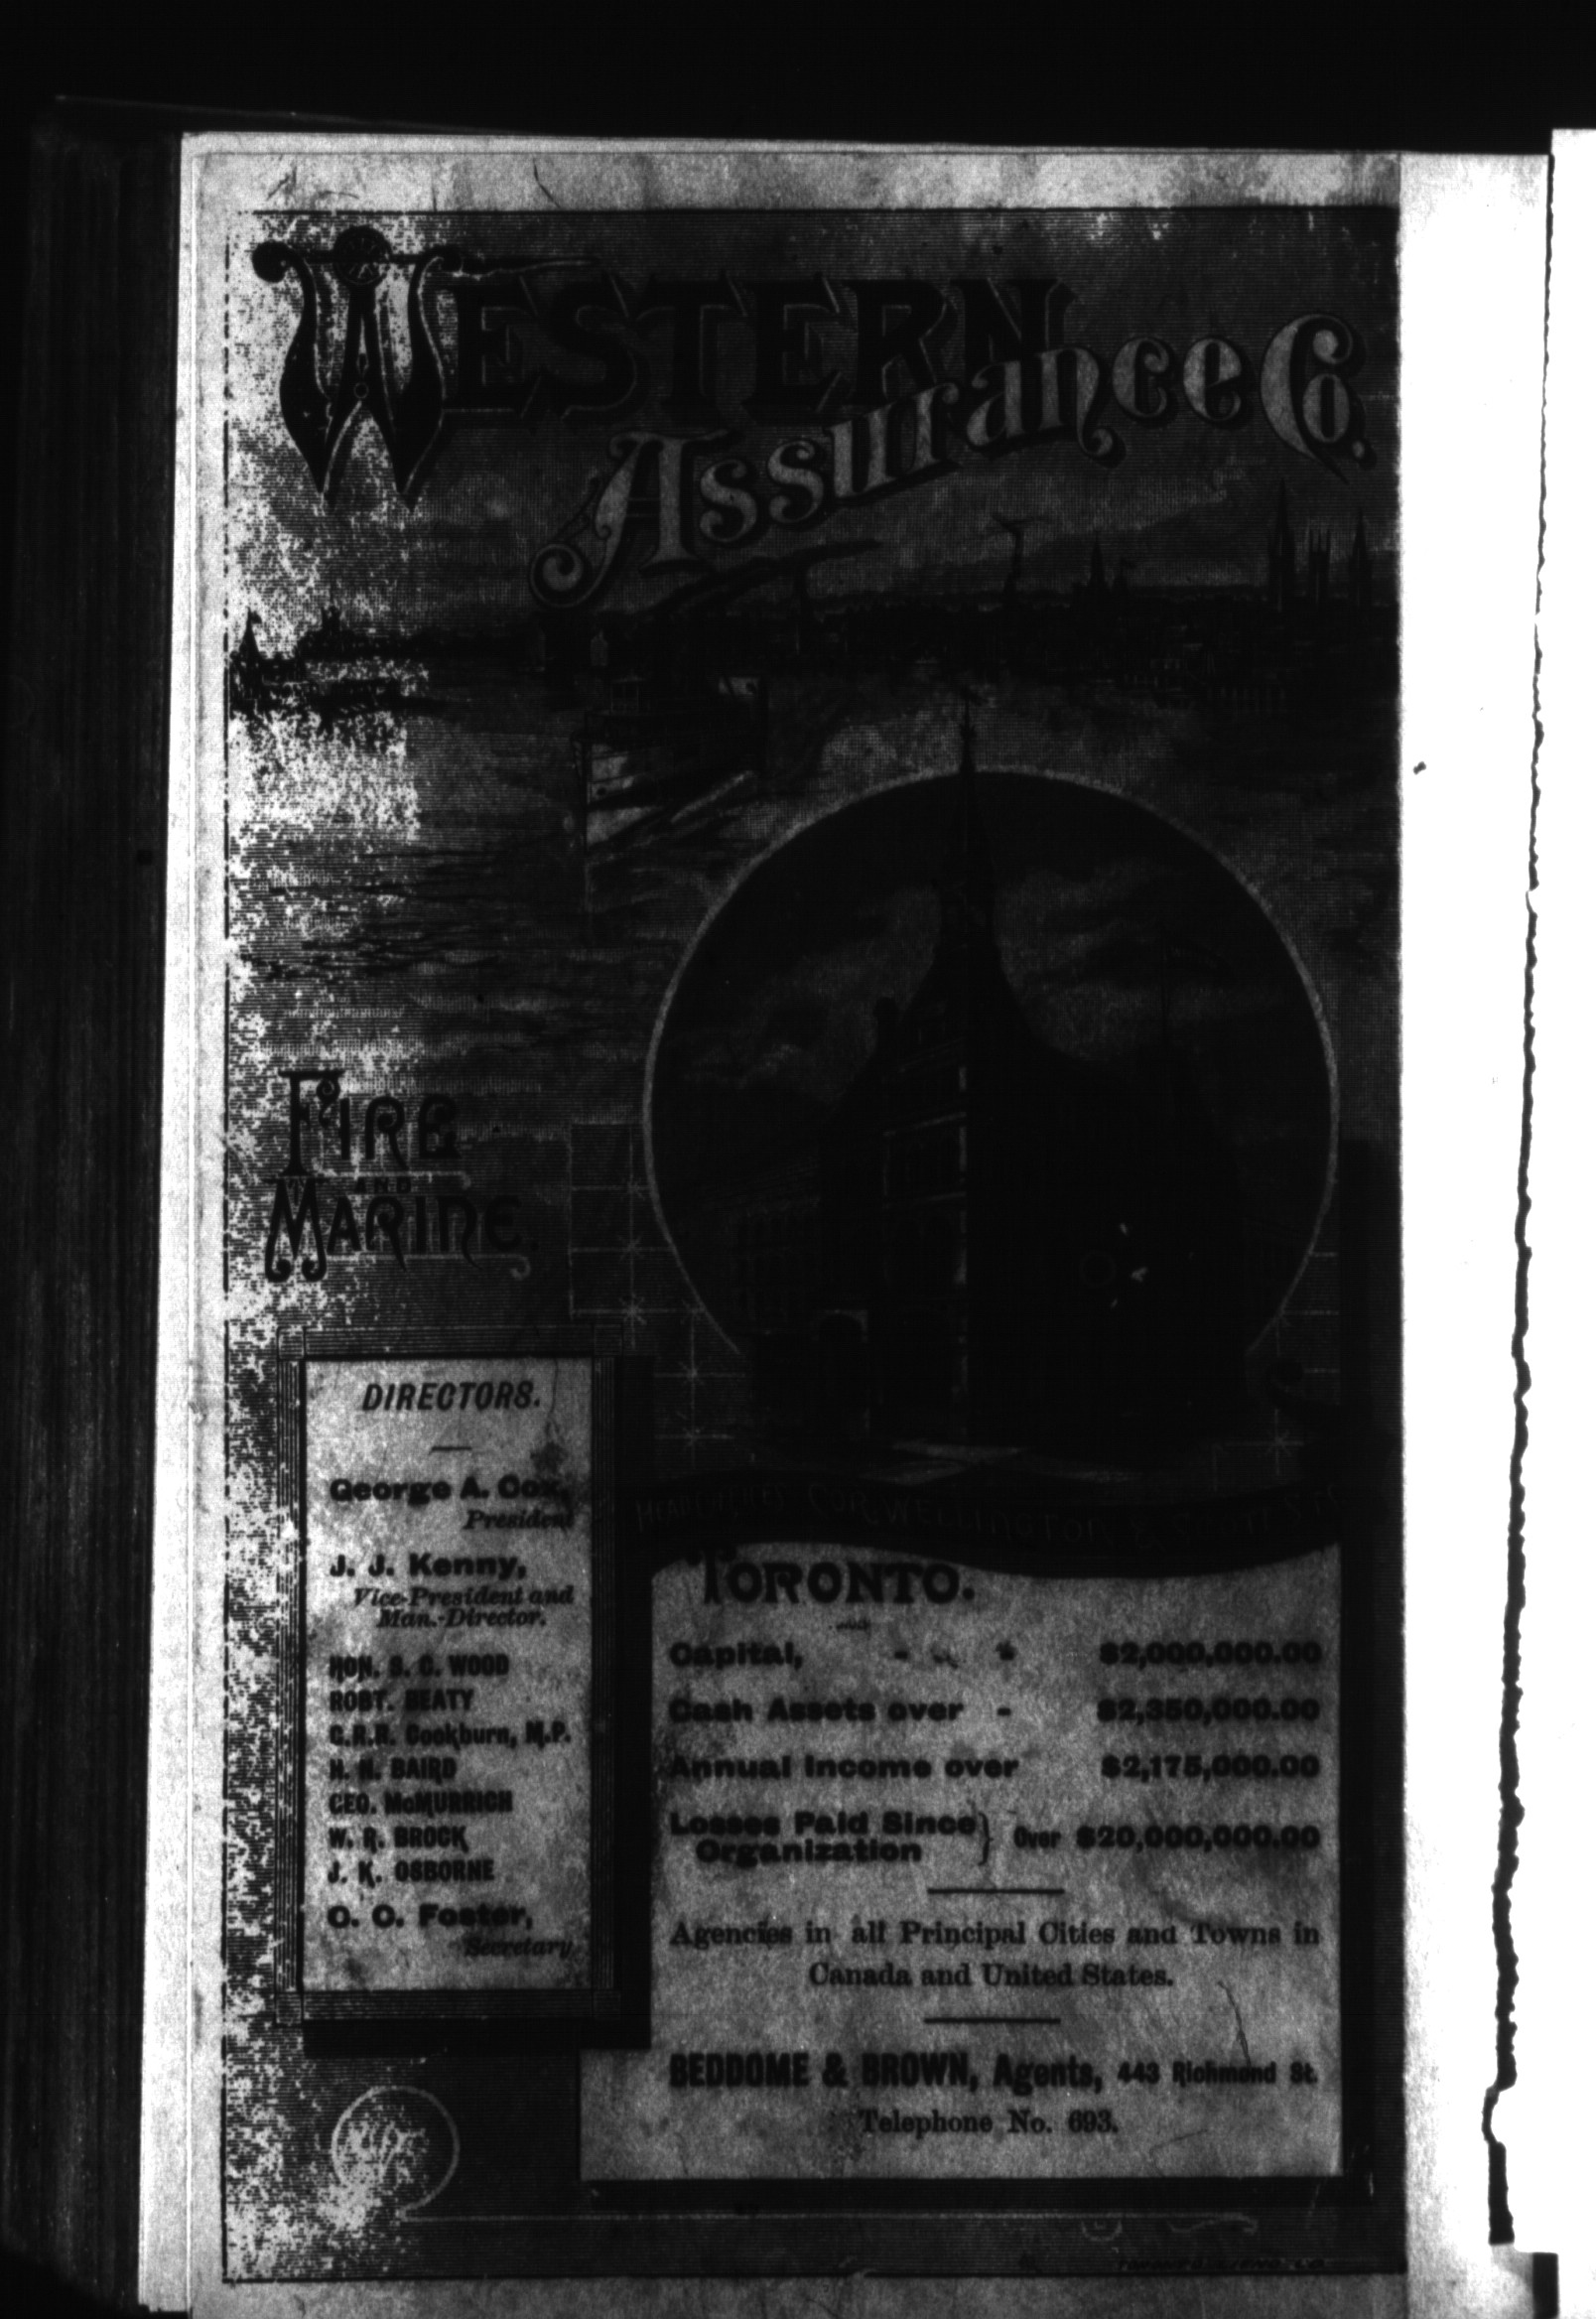 WESTERN
Assurance Co.
FIRE
AND
MARINE.
DIRECTORS.
George A. Cox,
President
J. J. Kenny,
Vice-President and
Man.-Director.
HON. S. C. WOOD
ROBT. BEATY
C.R.R. Cookburn, M.P.
H. N. BAIRD
GEO. McMURRICH
W. R. BROCK
J. K. OSBORNE
C. C. Foster,
Secretary
COR. WELLINGTON &
TORONTO.
Capital, - - - $2,000,000.00
Cash Assets over - $2,350,000.00
Annual Income over $2,175,000.00
Losses Paid Since
Organization } Over $20,000,000.00
Agencies in all Principal Cities and Towns in
Canada and United States.
BEDDOME & BROWN, Agents, 443 Richmond St.
Telephone No. 693.